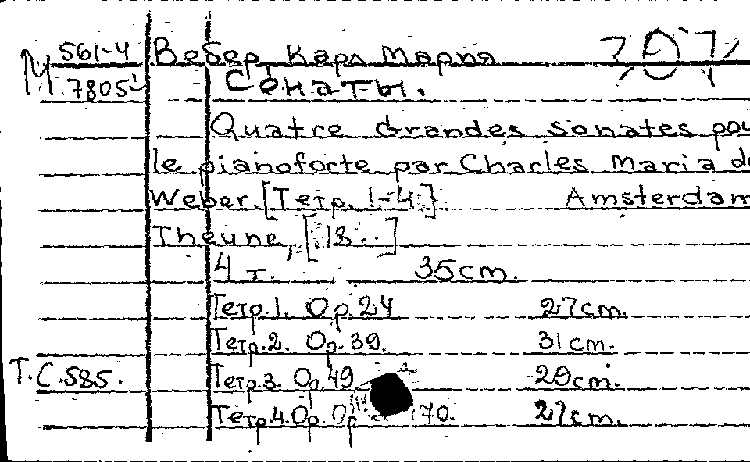 М 561-4 Вебер, Карл Мария 207
7805 Сонаты.
Quatre Grandes Sonates pou
le pianoforte par Charles Maria de
Weber. [Тетр. 1-4] Amsterdam
Theune, [18..]
4 т. 35 cm.
Тетр. 1. Op. 24 27 cm.
Тетр. 2. Op. 39. 31 cm.
Т. С. 585. Тетр. 3. Op. 49 29 cm.
Тетр. 4. Op. Op. 70. 27 cm.